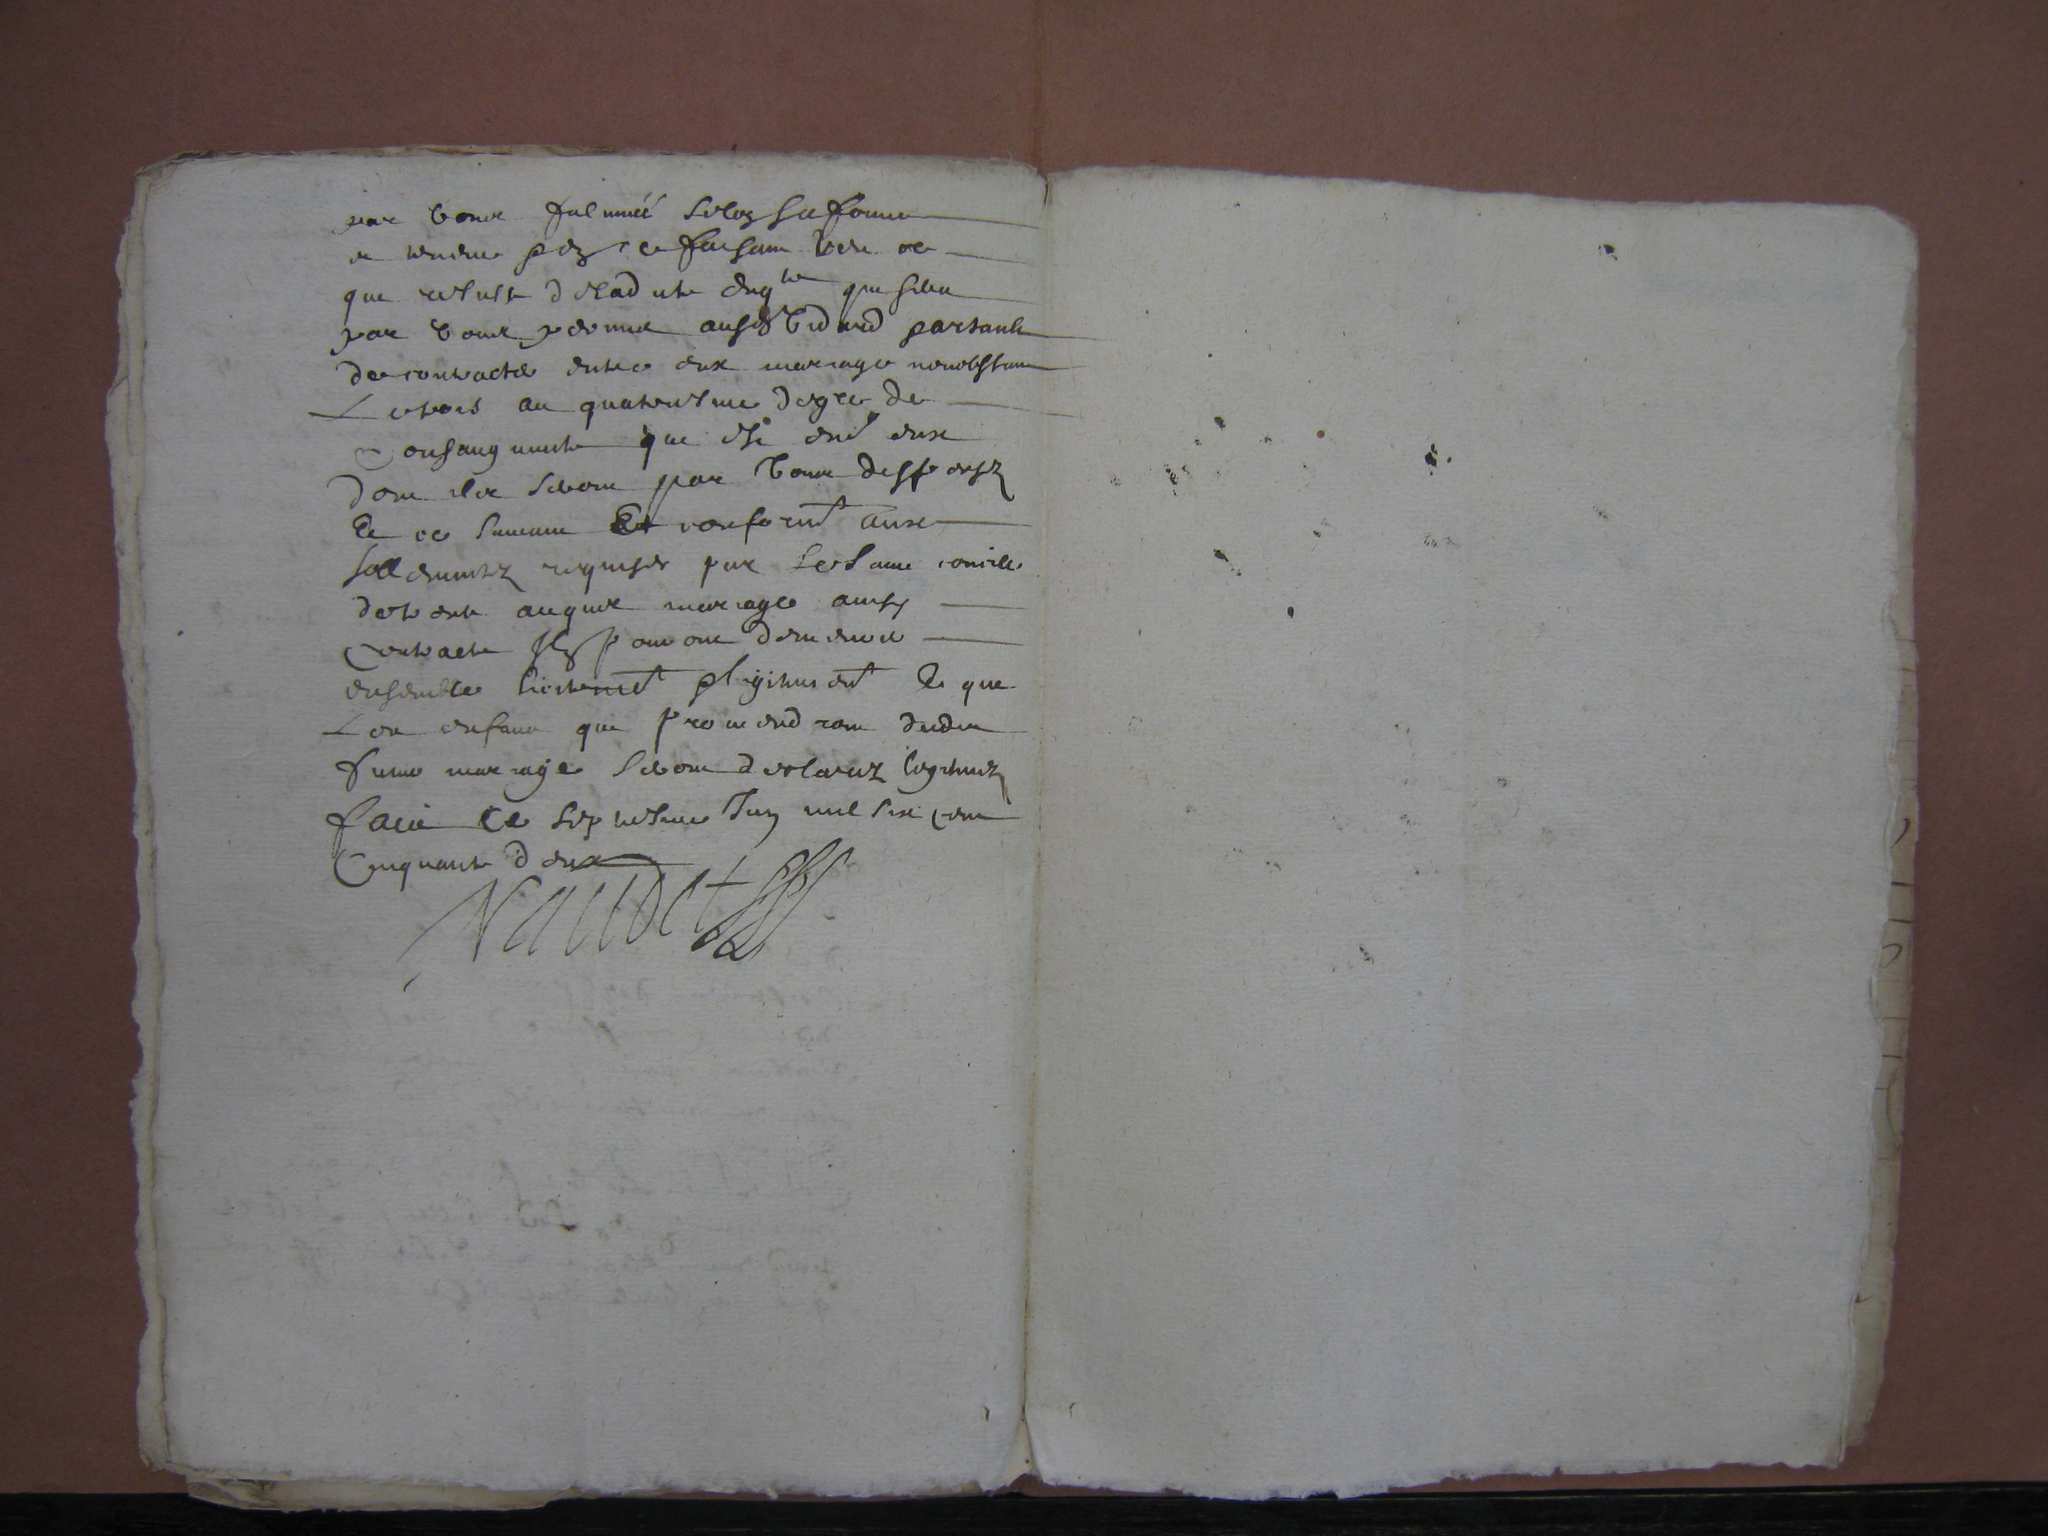 par vous fulminée selon sa forme
et teneur ce faisant veu ce
que resulte de ladite enqte que sera
par vous permis aus partantz
de contracter entre eux mariage nonobstant
le tiers au quatriesme degré de
consanguinité que est entre eux
dont ils seront par vous dispensez
Et ce suivant Et conformt aux
sollemnitez requises par le saint concille
de trente auquel mariage ainsy
contracté ilz pourront demeurer
ensemble licitement legitimement Et que
les enfans que proviendront dudit
futur mariage seront desclarez legitimes
faict ce septiesme Juin mil six cent
Cinquante deux
Naudet